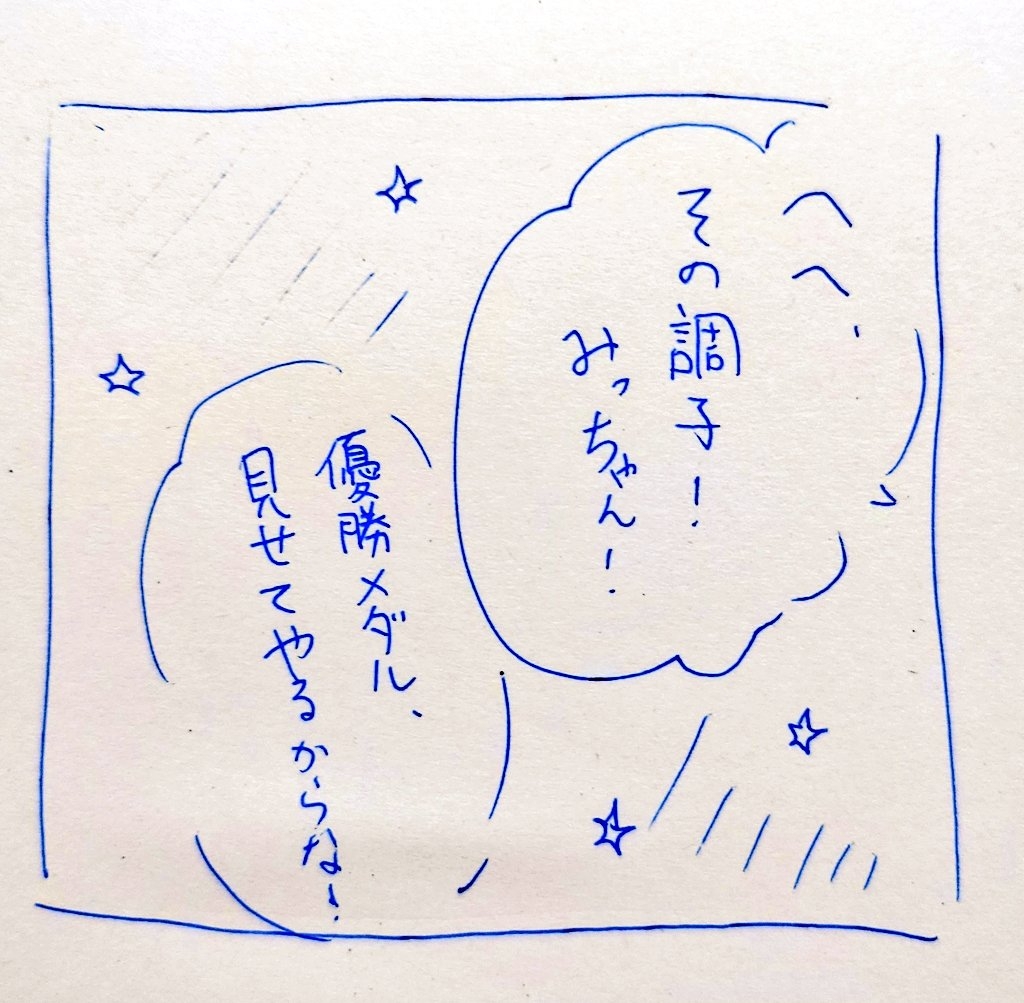 へへ、
その調子！
みっちゃん！
優勝メダル、
見せてやるからな！